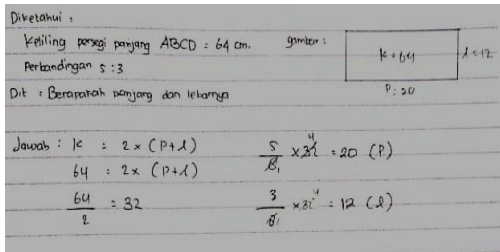 Diketahui :
Keliling persegi panjang ABCD : 64 cm.
gambar :
K = 64
l = 12
P : 20
Perbandingan 5 : 3
Dit : Berapakah panjang dan lebarnya
Jawab : K : 2 × (P+l)
64 : 2 × (P+l)
64/2 : 32
5/8 1 × 32 4 = 20 (P)
3/8 1 × 32 4 = 12 (l)